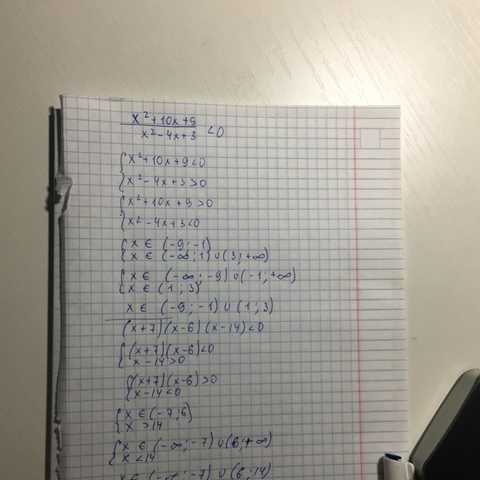 x²+10x+9
x²-4x+3 <0
{x²+10x+9<0
x²-4x+3>0
{x²+10x+9>0
x²-4x+3<0
{x ∈ (-9;-1)
x ∈ (-∞;1)∪(3;+∞)
{x ∈ (-∞;-9)∪(-1;+∞)
x ∈ (1;3)
x ∈ (-9;-1)∪(1;3)
(x+7)(x-6)(x-14)<0
{(x+7)(x-6)<0
x-14>0
{(x+7)(x-6)>0
x-14<0
{x ∈ (-7;6)
x >14
{x ∈ (-∞;-7)∪(6;+∞)
x <14
x ∈ (-∞;-7)∪(6;14)